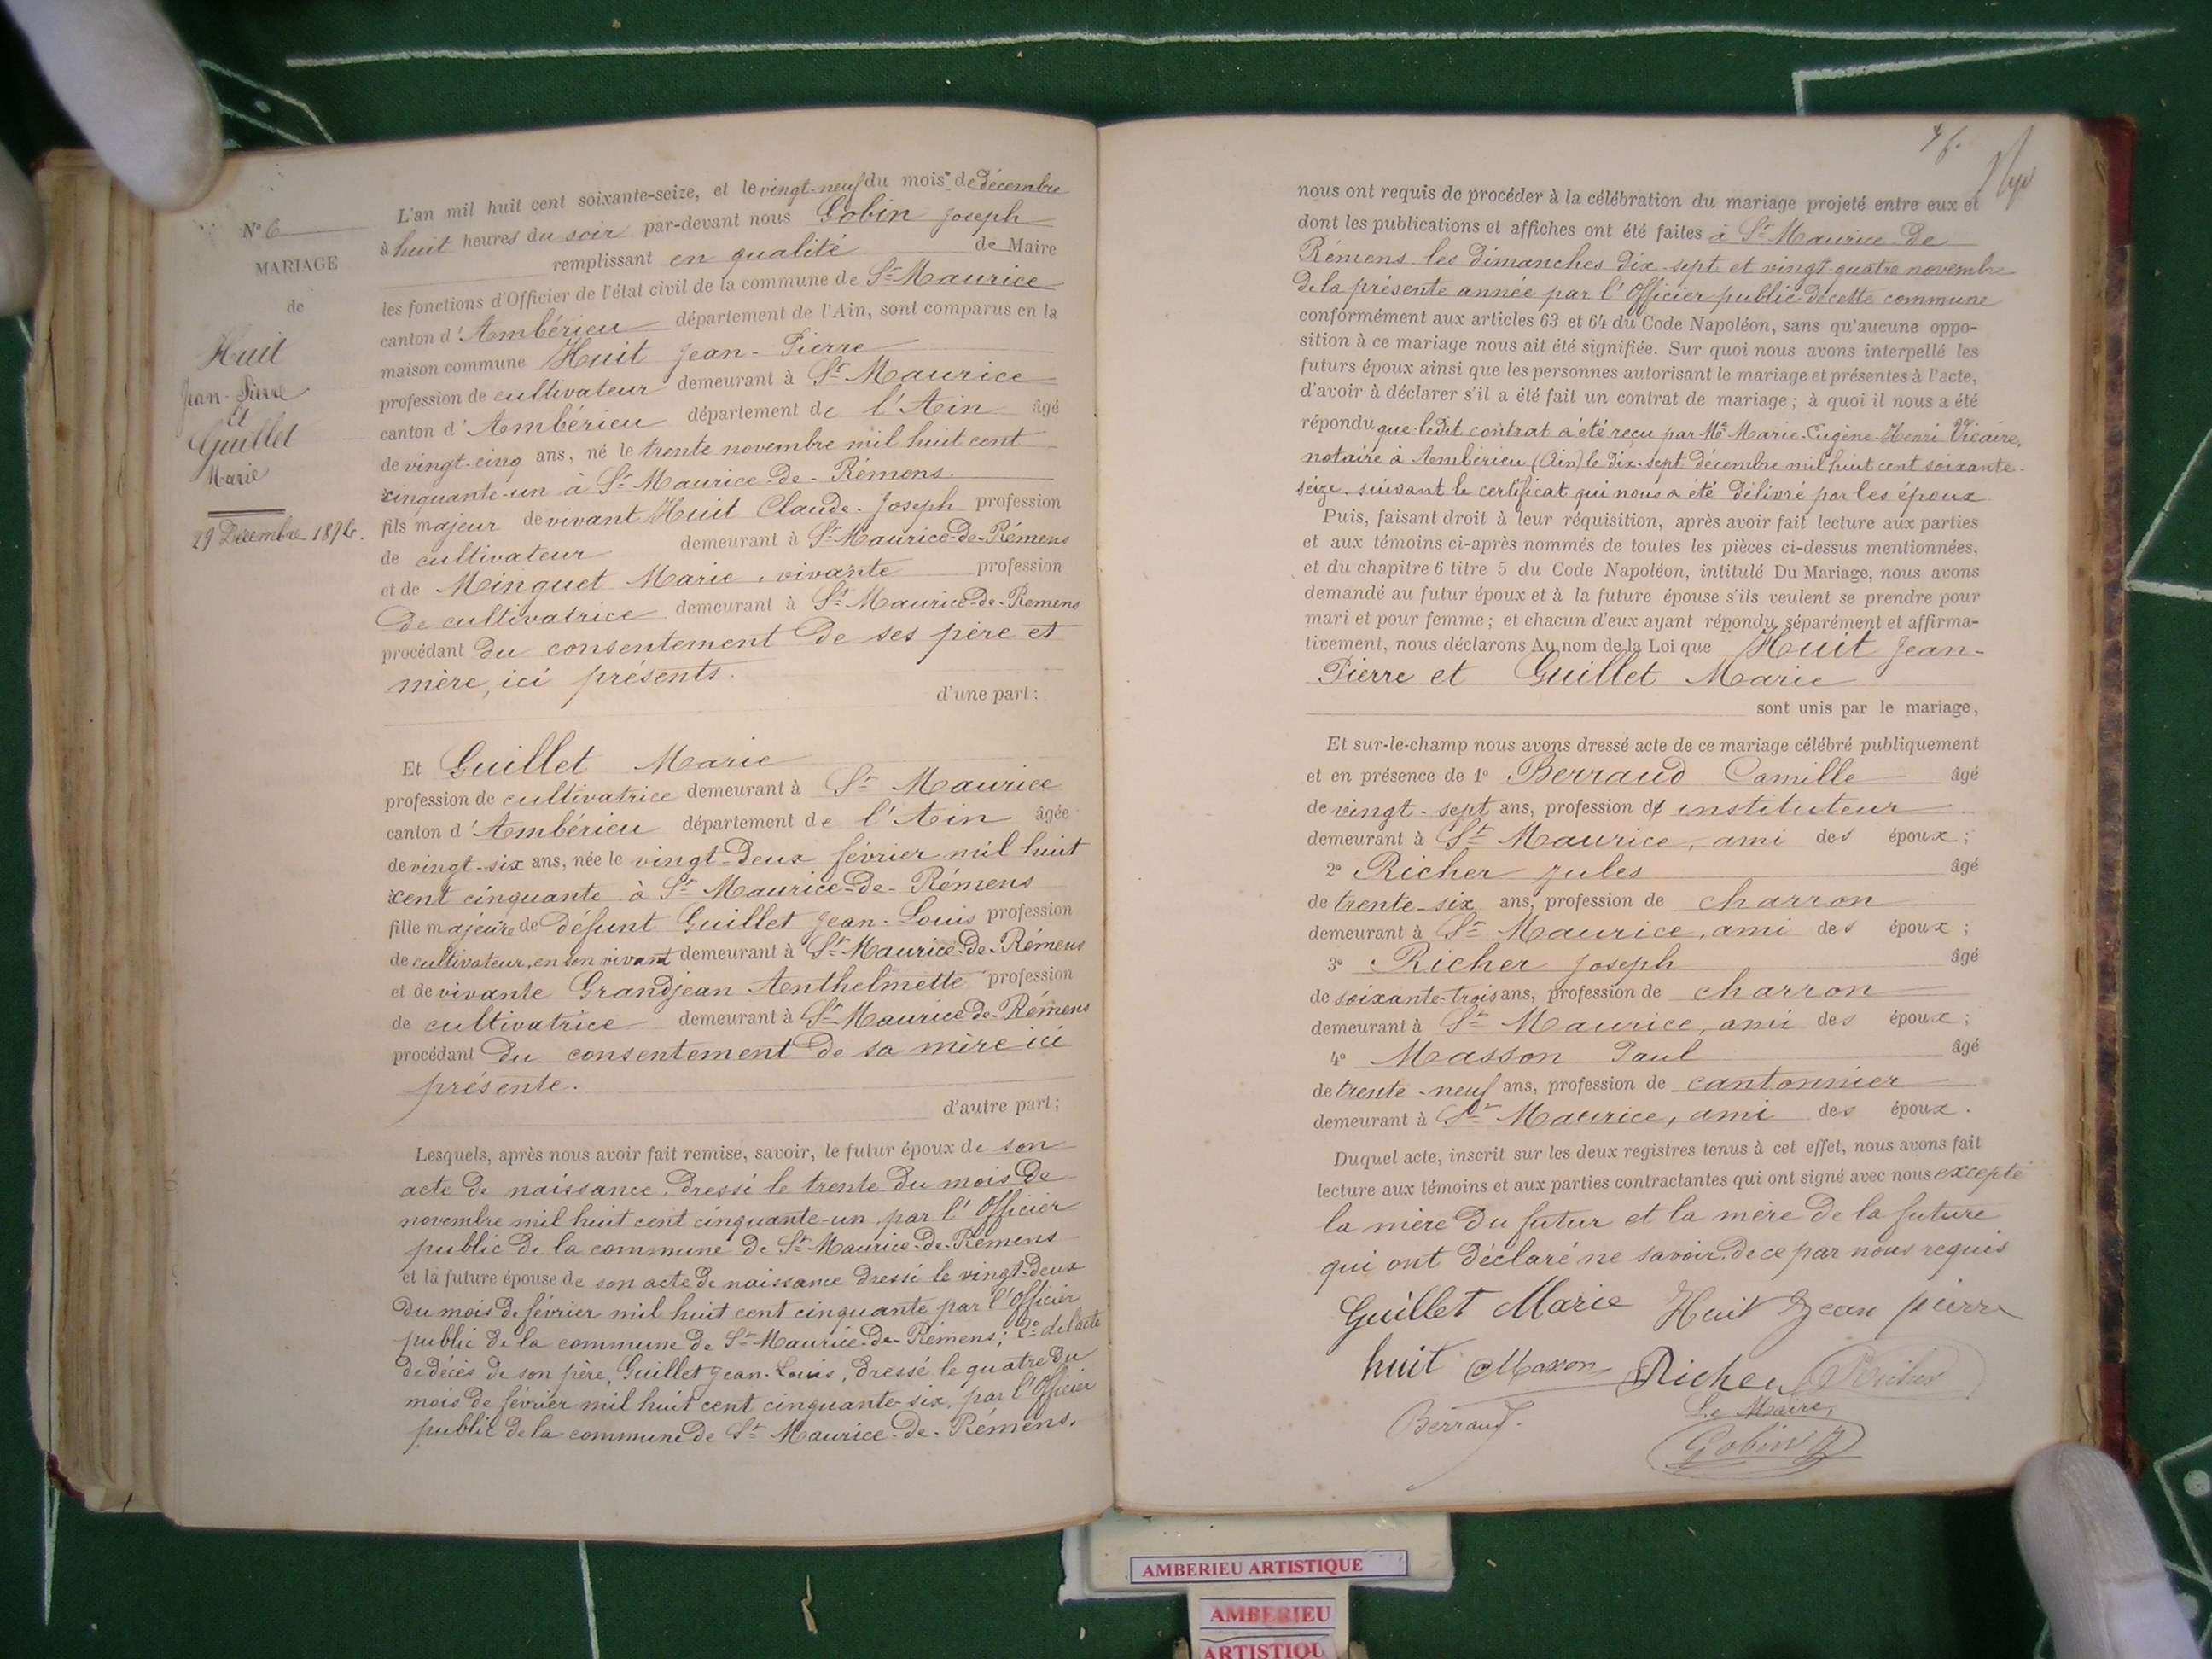 N° 6
MARIAGE
de
Huit
Jean-Pierre
et
Guillet
Marie
29 Décembre 1876.
L'an mil huit cent soixante-seize, et le vingt-neuf du mois de décembre
à huit heures du soir par-devant nous Gobin Joseph
remplissant en qualité de Maire
les fonctions d'Officier de l'état civil de la commune de St Maurice
canton d'Ambérieu département de l'Ain, sont comparus en la
maison commune Huit Jean-Pierre
profession de cultivateur demeurant à St Maurice
canton d'Ambérieu département de l'Ain âgé
de vingt-cinq ans, né le trente novembre mil huit cent
cinquante-un à St Maurice-de-Rémens.
fils majeur de vivant Huit Claude-Joseph profession
de cultivateur demeurant à St Maurice-de-Rémens
et de Minguet Marie, vivante profession
de cultivatrice demeurant à St Maurice-de-Remens
procédant du consentement de ses père et
mère, ici présents.
d'une part;
Et Guillet Marie
profession de cultivatrice demeurant à St Maurice
canton d'Ambérieu département de l'Ain âgée
de vingt-six ans, née le vingt-deux février mil huit
cent cinquante à St Maurice-de-Rémens
fille majeure de défunt Guillet Jean-Louis profession
de cultivateur, en son vivant demeurant à St Maurice-de-Rémens
et de vivante Grandjean Anthelmette profession
de cultivatrice demeurant à St Maurice de-Rémens
procédant du consentement de sa mère ici
présente.
d'autre part;
Lesquels, après nous avoir fait remise, savoir, le futur époux de son
acte de naissance, dressé le trente du mois de
novembre mil huit cent cinquante-un par l'Officier
public de la commune de St Maurice-de-Remens
et la future épouse de son acte de naissance dressé le vingt-deux
du mois de février mil huit cent cinquante par l'Officier
public de la commune de St Maurice-de-Rémens; 2° de l'acte
de décès de son père, Guillet Jean-Louis, dressé le quatre du
mois de février mil huit cent cinquante-six, par l'Officier
public de la commune de St Maurice-de-Rémens.
nous ont requis de procéder à la célébration du mariage projeté entre eux et
dont les publications et affiches ont été faites à St Maurice de
Rémens les dimanches dix-sept et vingt-quatre novembre
de la présente année par l'Officier public de cette commune
conformément aux articles 63 et 64 du Code Napoléon, sans qu'aucune oppo-
sition à ce mariage nous ait été signifiée. Sur quoi nous avons interpellé les
futurs époux ainsi que les personnes autorisant le mariage et présentes à l'acte,
d'avoir à déclarer s'il a été fait un contrat de mariage; à quoi il nous a été
répondu que ledit contrat a été reçu par Me Marie-Eugène-Henri Vicaire,
notaire à Ambérieu (Ain) le dix-sept décembre mil huit cent soixante-
seize, suivant le certificat qui nous a été délivré par les époux
Puis, faisant droit à leur réquisition, après avoir fait lecture aux parties
et aux témoins ci-après nommés de toutes les pièces ci-dessus mentionnées,
et du chapitre 6 titre 5 du Code Napoléon, intitulé Du Mariage, nous avons
demandé au futur époux et à la future épouse s'ils veulent se prendre pour
mari et pour femme; et chacun d'eux ayant répondu séparément et affirma-
tivement, nous déclarons Au nom de la Loi que Huit Jean-
Pierre et Guillet Marie
sont unis par le mariage,
Et sur-le-champ nous avons dressé acte de ce mariage célébré publiquement
et en présence de 1° Berraud Camille âgé
de vingt-sept ans, profession d' instituteur
demeurant à St Maurice, ami des époux;
2° Richer Jules âgé
de trente-six ans, profession de charron
demeurant à St Maurice, ami des époux;
3° Richer Joseph âgé
de soixante-trois ans, profession de charron
demeurant à St Maurice, ami des époux;
4° Masson Paul âgé
de trente-neuf ans, profession de cantonnier
demeurant à St Maurice, ami des époux.
Duquel acte, inscrit sur les deux registres tenus à cet effet, nous avons fait
lecture aux témoins et aux parties contractantes qui ont signé avec nous excepté
la mère du futur et la mère de la future
qui ont déclaré ne savoir, de ce par nous requis
Guillet Marie Huit Jean pierre
huit Maxon Richer Richer
Berraud.
Le Maire,
Gobin
AMBERIEU ARTISTIQUE
AMBERIEU
ARTISTIQU